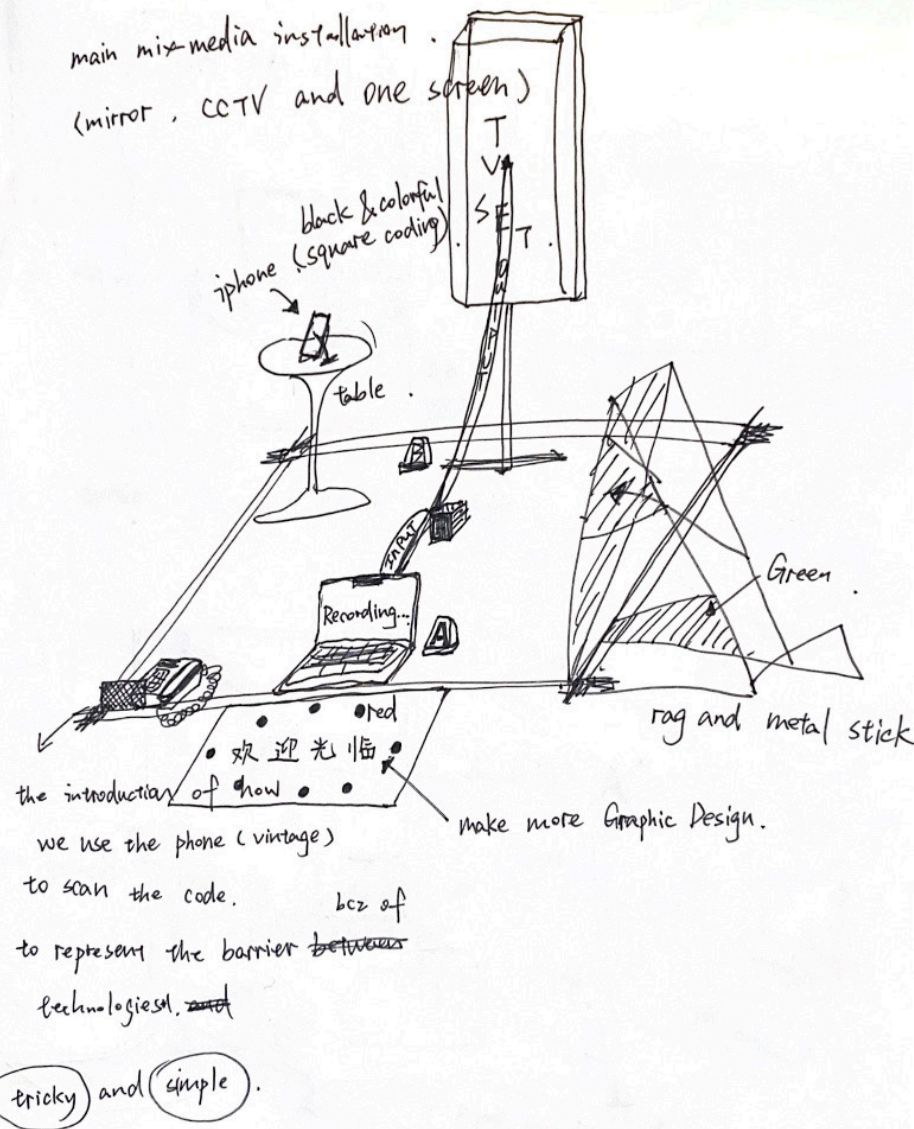 main mix-media installation .
(mirror . CCTV and one screen)
T
V
S E T .
OUTPUT
black & colorful
(square coding) .
iphone
table .
B
INPUT
Recording...
A
Green
rag and metal stick
red
欢迎光临
make more Graphic Design.
the introduction of how
we use the phone (vintage)
to scan the code.
bcz of
to represent the barrier between
technologies. and
tricky and simple .